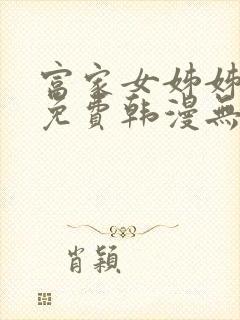 富家女姊姊
免費韩漫無
肖颖